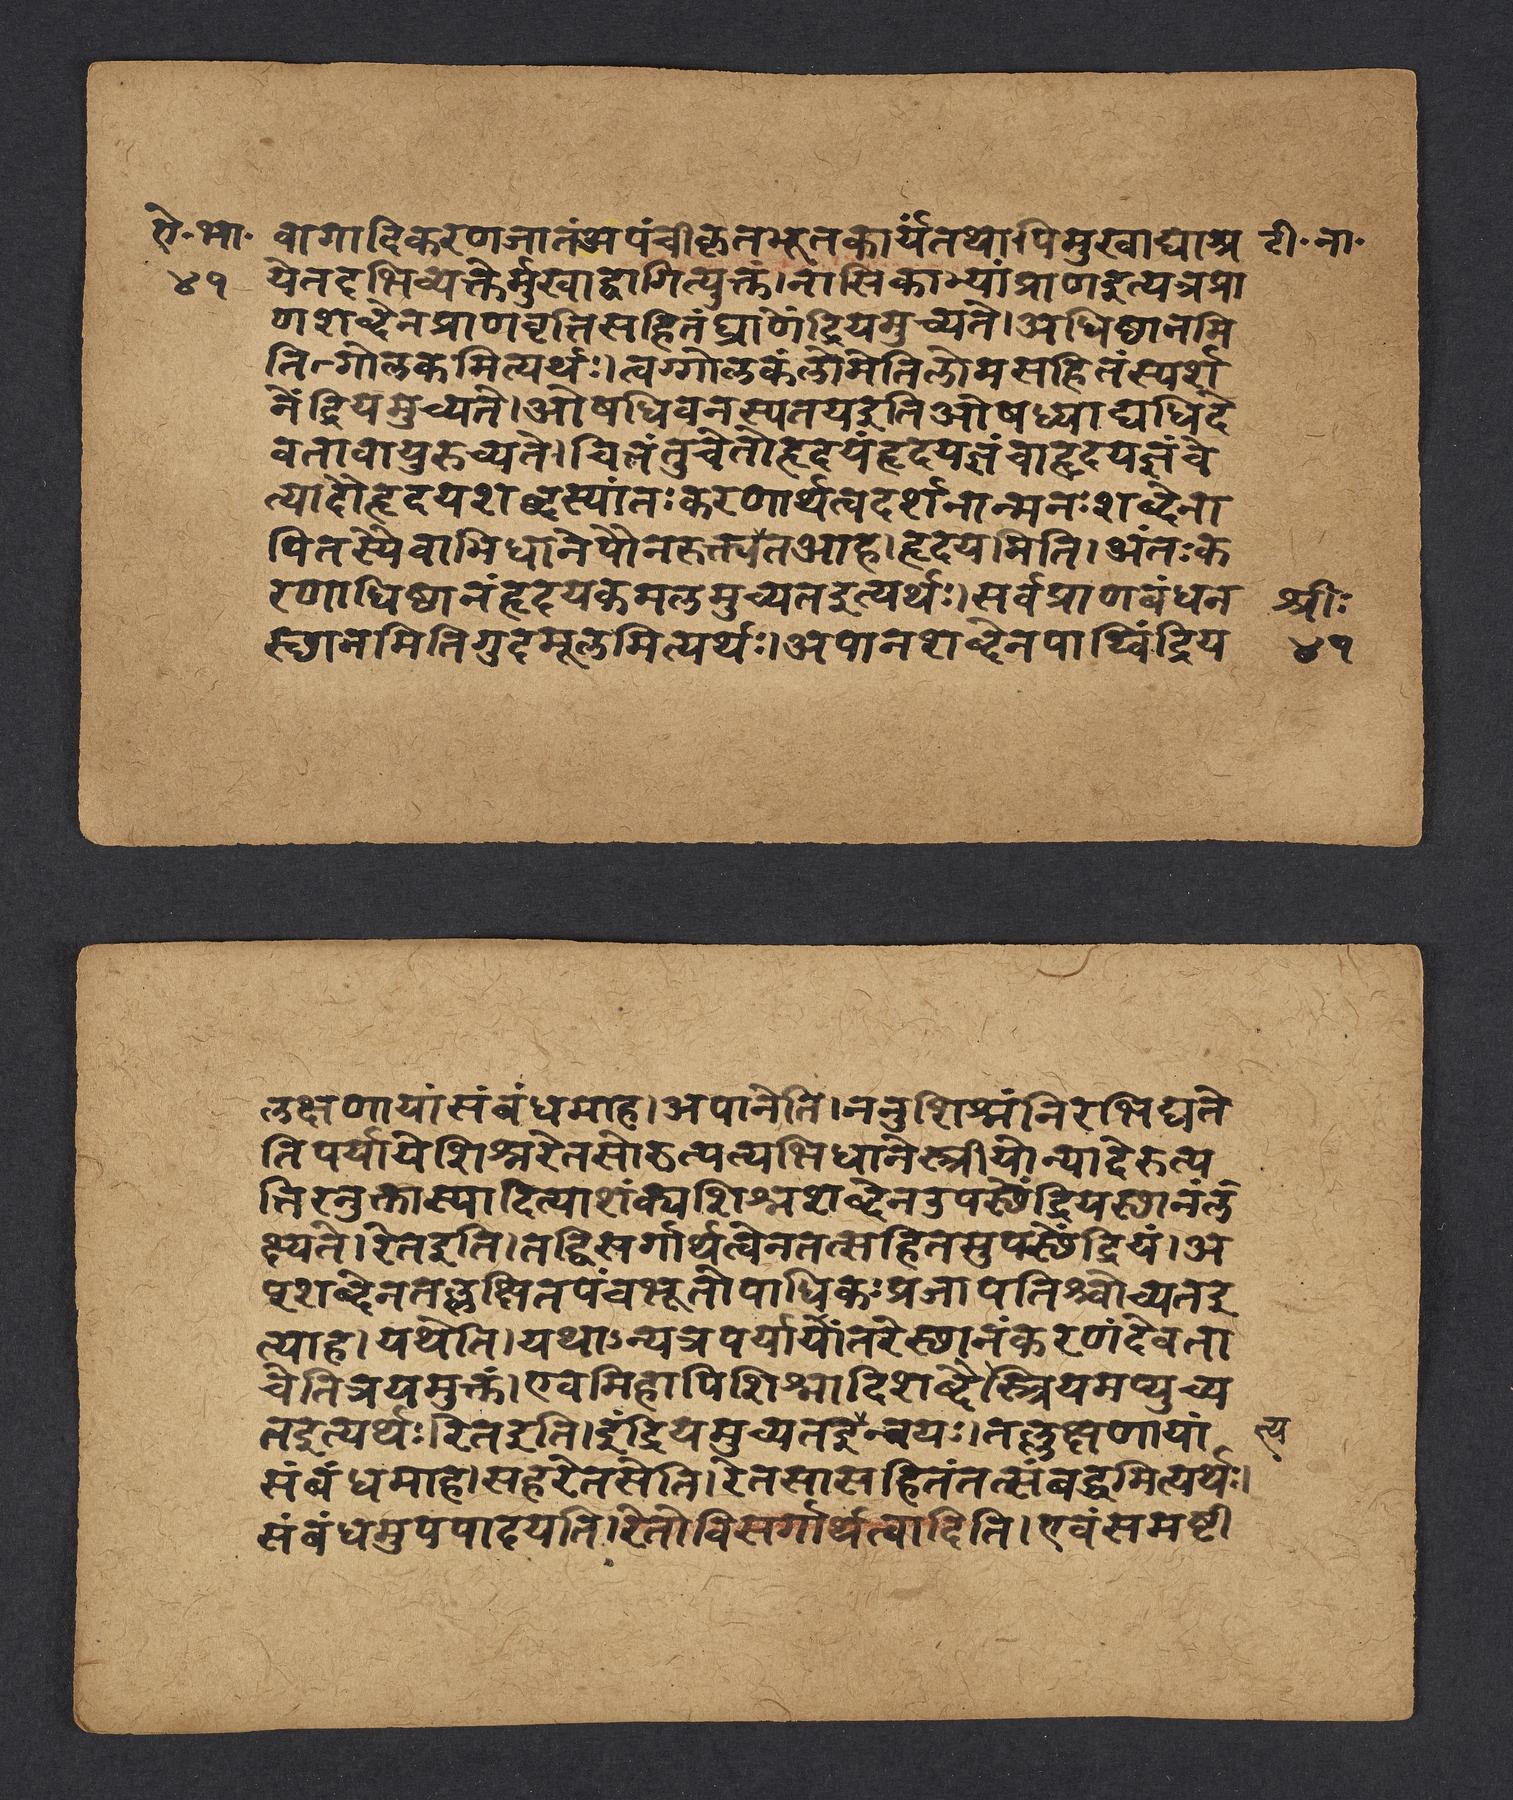 ऐ॰भा॰ वागादिकरणजातंअपंचीकृतभूतकार्यंतथापिमुखाद्याश्र टी॰ना॰
४१ येतदभिव्यक्तेर्मुखाद्वागित्युक्तं।नासिकाभ्यांप्राणइत्यत्रप्रा
णशब्देनप्राणवृत्तिसहितंघ्राणेंद्रियमुच्यते।अधिष्ठानमि
तिगोलकमित्यर्थः।त्वग्गोलकंलोमेतिलोमसहितंस्पर्श
नेंद्रियमुच्यते।ओषधिवनस्पतयइतिओषध्याद्यधिदे
वतावायुरुच्यते।चित्तंतुचेतोहृदयंहृदयज्ञंचाहृदयज्ञंचे
त्यादौहृदयशब्दस्यांतःकरणार्थत्वदर्शनान्मनःशब्देना
पितस्यैवाभिधानेपौनरुक्त्यंतआह।हृदयमिति।अंतःक
रणाधिष्ठानंहृदयकमलमुच्यतइत्यर्थः।सर्वप्राणबंधन श्रीः
स्थानमितिगुदमूलमित्यर्थः।अपानशब्देनपाय्विंद्रिय ४१
लक्षणायांसंबंधमाह।अपानेति।ननुशिश्नंनिरभिद्यते
तिपर्यायेशिश्नरेतसोरुत्पत्यभिधानेस्त्रीयोन्यादेरुत्प
त्तिरनुक्तास्यादित्याशंक्यशिश्नशब्देनउपस्थेंद्रियस्थानंल
क्ष्यते।रेतइति।तद्विसर्गार्थत्वेनतत्सहितमुपस्थेंद्रियं।अ
प्शब्देनतल्लक्षितपंचभूतोपाधिकःप्रजापतिश्चोच्यतइ
त्याह।यथेति।यथाऽन्यत्रपर्यायांतरेस्थानंकरणंदेवता
चेतित्रयमुक्तं।एवमिहापिशिश्नादिशब्दैस्त्रियमप्युच्य
तइत्यर्थः।रेतइति।इंद्रियमुच्यतइन्वयः।तल्लक्षणायां त्य
संबंधमाह।सहरेतसेति।रेतसासहितंतत्संबद्धमित्यर्थः।
संबंधमुपपादयति।रेतोविसर्गार्थत्वादिति।एवंसमष्टी